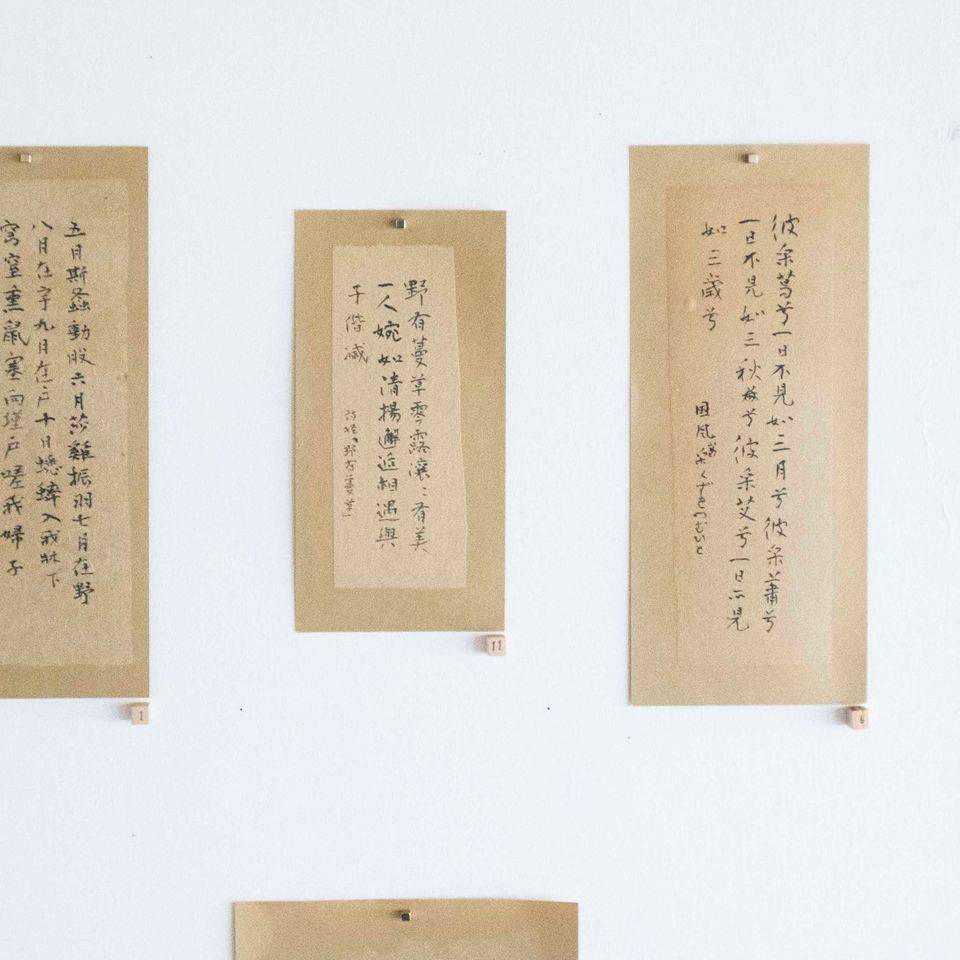 彼采葛兮一日不見如三月兮彼采蕭兮
一日不見如三秋兮彼采艾兮一日不見
如三歲兮
国風 采葛 くずをつむ
野有蔓草零露瀼々有美
一人婉如清揚邂逅相遇與
子偕臧
詩経「野有蔓草」
11
6
五月斯螽動股六月莎雞振羽七月在野
八月在宇九月在戸十月蟋蟀入我牀下
穹窒熏鼠塞向墐戸嗟我婦子
1